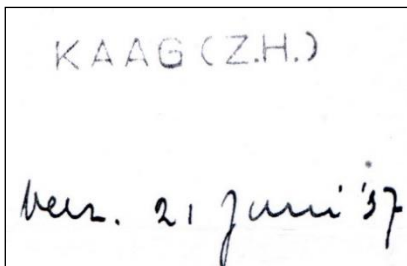 KAAG (Z.H.)
Verz. 21 Juni '37